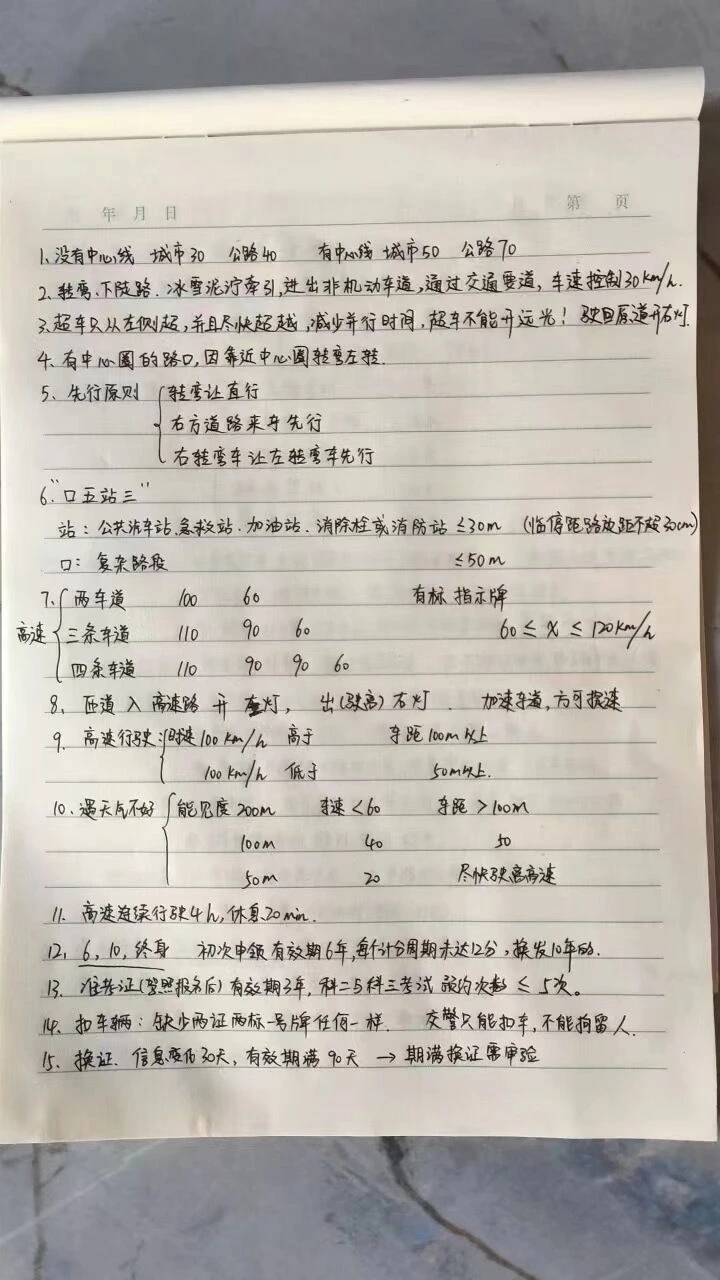 年 月 日 第 页
1、没有中心线 城市30 公路40 有中心线 城市50 公路70
2、转弯、下陡路、冰雪泥泞牵引,进出非机动车道,通过交通要道,车速控制30km/h.
3、超车只从左侧超,并且尽快超越,减少并行时间,超车不能开远光! 驶回原道开右灯.
4、有中心圈的路口,因靠近中心圈转弯左转.
5、先行原则 转弯让直行
右方道路来车先行
右转弯车让左转弯车先行
6、"口五站三"
站:公共汽车站、急救站、加油站、消除栓或消防站 ≤30m (临停距路边距不超30cm)
口:复杂路段 ≤50m
7、两车道 100 60 有标 指示牌
高速 三条车道 110 90 60 60≤x≤120km/h
四条车道 110 90 90 60
8、匝道 入 高速路 开 左灯, 出(驶离)右灯. 加速车道,方可提速
9、高速行驶:时速100km/h 高于 车距100m以上
100km/h 低于 50m以上.
10、遇天气不好 能见度200m 车速<60 车距>100m
100m 40 50
50m 20 尽快驶离高速
11、高速连续行驶4h,休息20min.
12、6,10,终身 初次申领有效期6年,每个计分周期未达12分,换发10年的.
13、准考证(驾照报名后)有效期3年,科二与科三考试 预约次数 ≤ 5次。
14、扣车辆:缺少两证两标一号牌任何一样. 交警只能扣车,不能拘留人.
15、换证、信息变化30天,有效期满90天 → 期满换证需审验